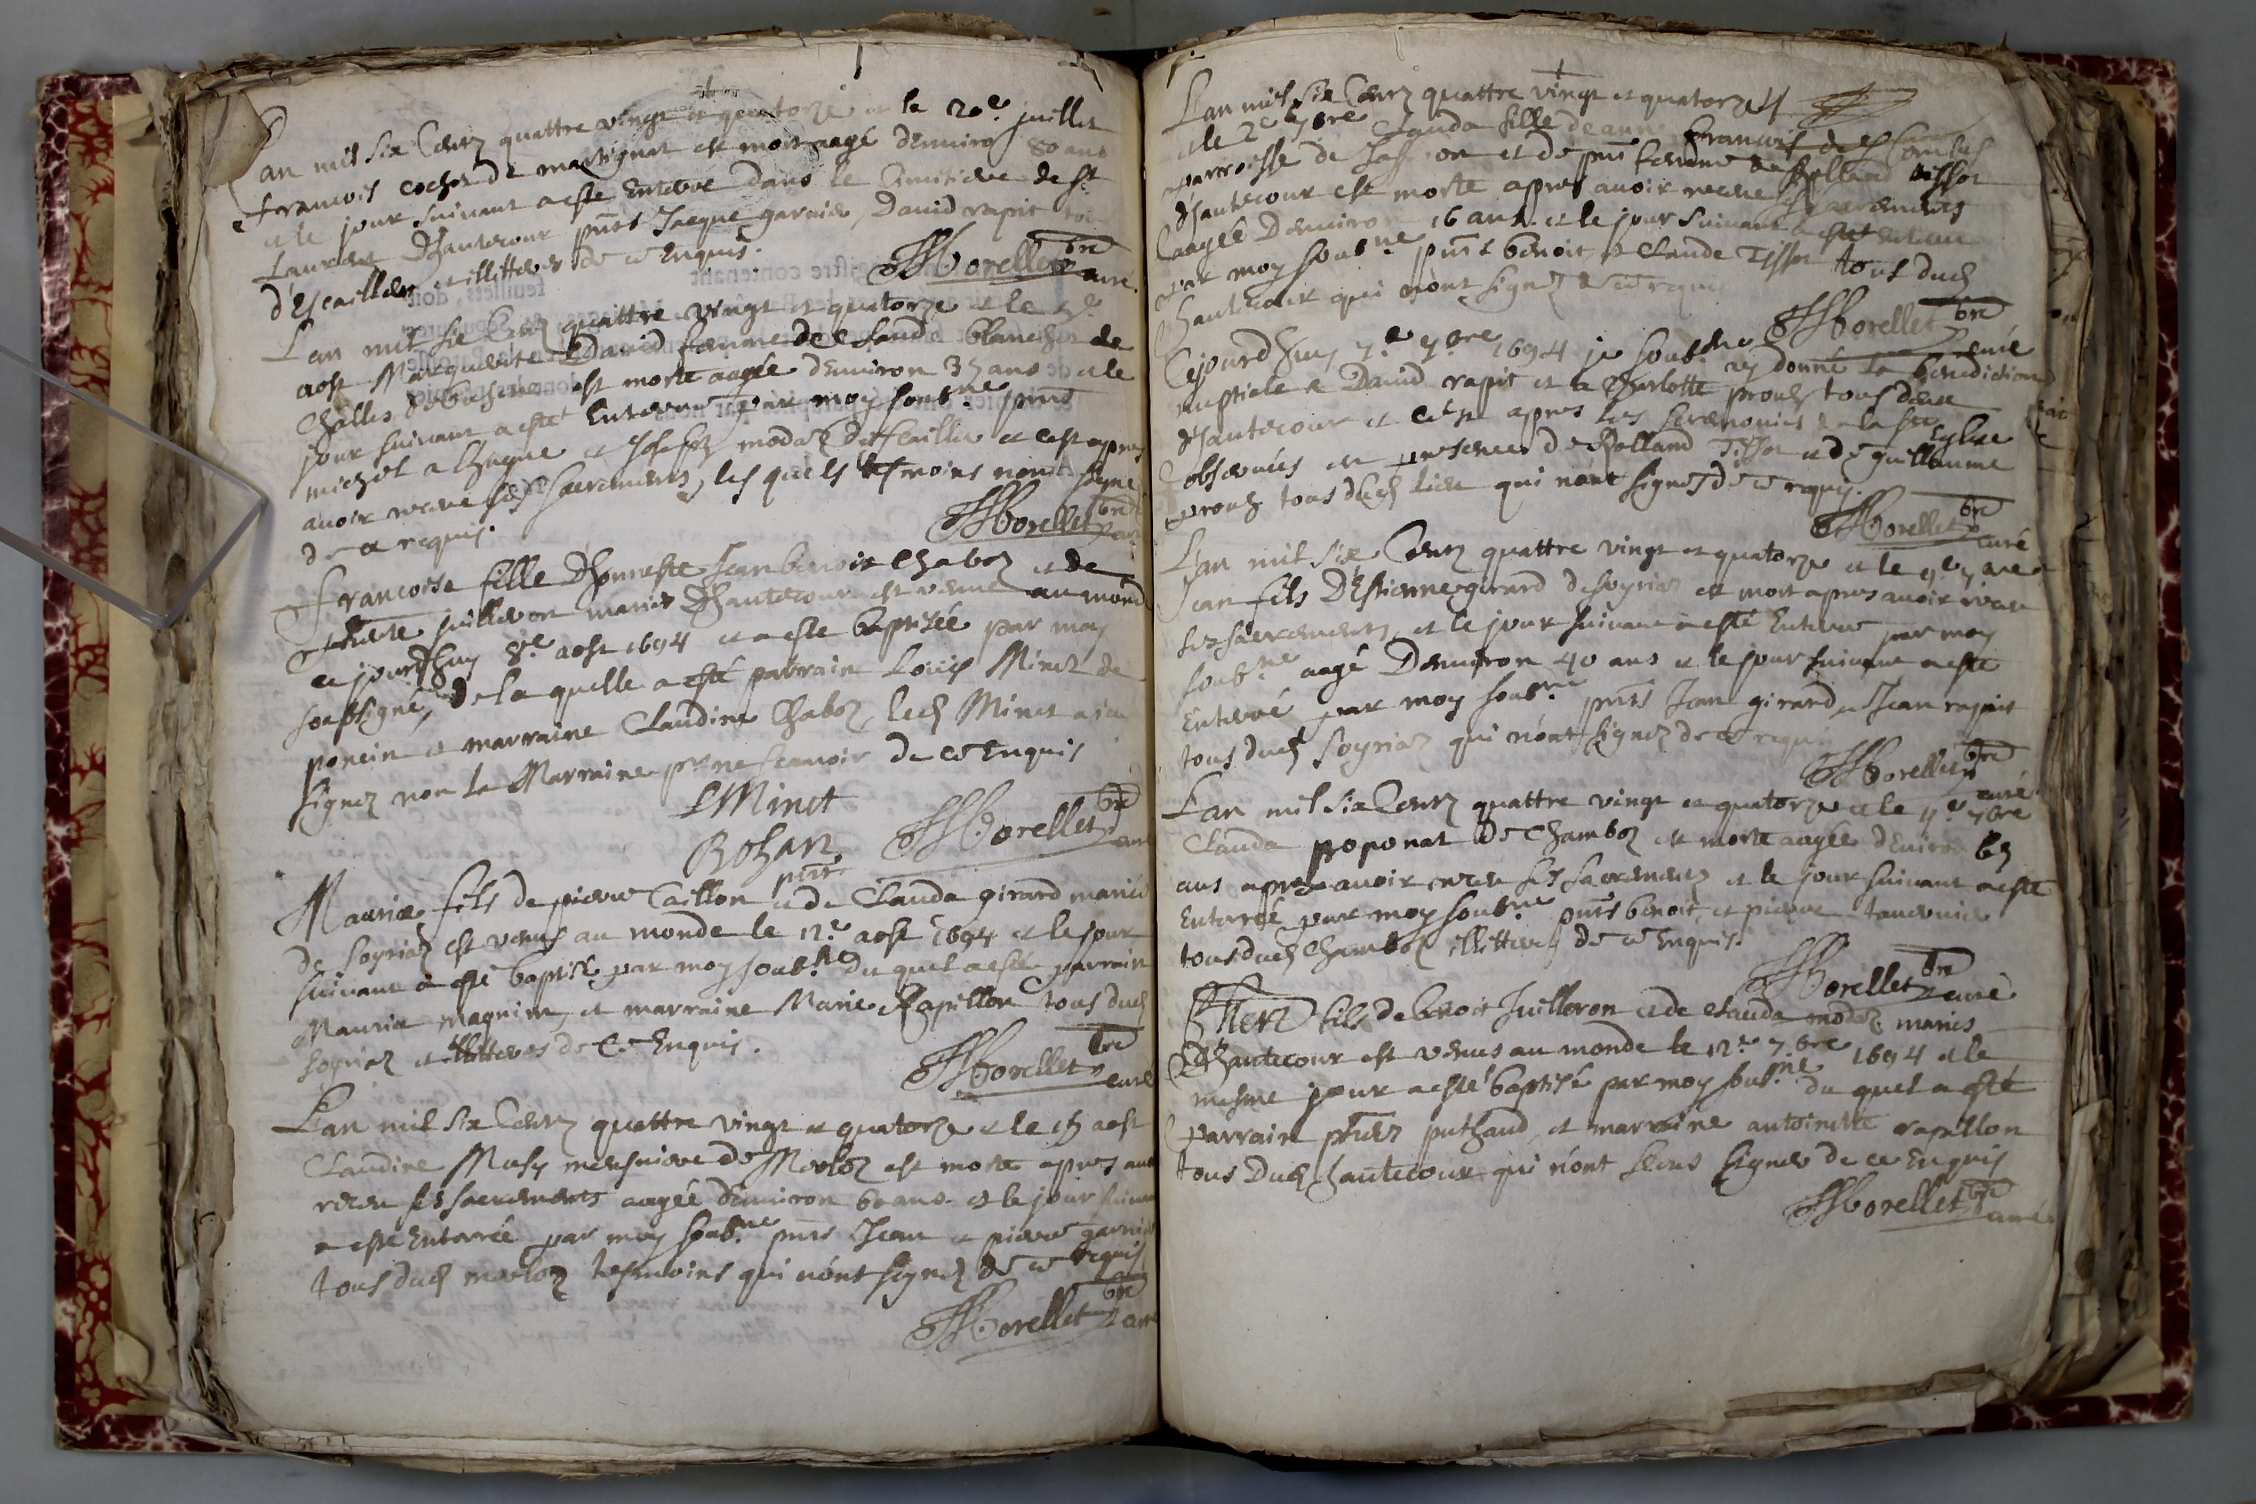 Lan mil six Centz quattre vingt et quatorze et le 20e juillet
francois cochet de martignat est mort aagé denviron 80 ans
et le jour suivant a esté Enterré dans le Cimitiere de st
Laurent dhautecour pnts Jacque garnier, David rapit tous
d'Escaillier et illitterez de ce Enquis.
Morellet pbre curé
Lan mil six Centz quattre vingt et quatorze et le
aost Marguerite David femme de Claude blanchet de
Challes de est morte aagée denviron 35 ans et le
jour suivant a esté Enterrée par moy soubne pnts
michel a et Joseph modaz et cest apres
avoir receu ses sacrements, les quels tesmoins nont signé
de ce requis.
Morellet pbre curé
francoise fille dhonneste Jean benoit Chaboz et de
juilleron mariés dhautecour est venue au monde
ce jourdhuy 8e aost 1694 et a esté baptisée par moy
soubsigné, de la quelle a esté parrain Louis Minet de
poncin et marraine Claudine Chaboz, led Minet a
signez non la Marraine pr ne scavoir de ce Enquis
LMinet
Bozan
pnt
Morellet pbre curé
Maurice fils de pierre Caillon et de Clauda girard mariés
de soyriaz est venu au monde le 12e aost 1694 et le jour
suivant a esté baptisé par moy soubne du quel a esté parrain
Maurice magnin, et marraine Marie Papillon tous dud
soyriaz et illitteres de Ce Enquis.
Morellet pbre curé
Lan mil six Centz quattre vingt et quatorze et le 15 aost
Claudine Musy de Merloz est morte apres avoir
receu ses sacrements aagée denviron 60 ans et le jour suivant
a esté Enterrée par moy soubne pnts Jean et pierre garnier
tous dud merloz tesmoins qui n'ont signez de ce requis
Morellet pbre curé
Lan mil six Centz quattre vingt et quatorze
et le 2e 7bre Clauda fille de francois des Combes
parroisse de et de femme de Rolland tissot
dhautecour est morte apres avoir receu ses sacrements
aagée denviron 16 ans et le jour suivant a esté enterrée
par moy soubne pnts benoit et Claude Tissot tous dud
hautecour qui n'ont signez de ce requis
Morellet pbre curé
Cejourdhuy 7e 7bre 1694 je soubne ay donné la benediction
nuptiale a David rapit et a Charlotte prouz tous deux
dhautecour et cest apres les ceremonies de la ste Eglise
observées en presence de Rolland Tissot et de guillaume
prouz tous dud lieu qui n'ont signez de ce requis.
Morellet pbre curé
Lan mil six Centz quattre vingt et quatorze et le 9e 7bre
Jean fils d'Estienne girard de soyriaz est mort apres avoir receu
ses sacrements, et le jour suivant a esté Enterré par moy
soubne aagé denviron 40 ans et le jour suivant a esté
Enterré par moy soubne pnts Jean girard et Jean rapit
tous dud soyriaz qui n'ont signez de ce requis
Morellet pbre curé
Lan mil six Centz quattre vingt et quatorze et le 11e 7bre
Clauda poponat de Chamboz est morte aagée denviron 65
ans apres avoir receu ses sacrements et le jour suivant a esté
Enterrée par moy soubne pnts benoit et pierre tavernier
tous dud Chamboz illitterez de ce Enquis.
Morellet pbre curé
fils de benoit Juilleron et de Clauda modaz mariés
dhautecour est venus au monde le 12e 7bre 1694 et le
mesme jour a esté baptisé par moy soubne du quel a esté
parrain puthaud et marraine antoinette papillon
tous dud hautecour qui n'ont sceus signer de ce Enquis
Morellet pbre curé